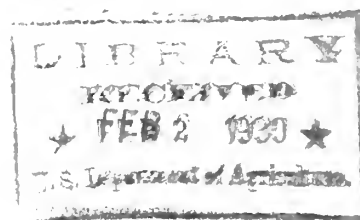 LIBRARY
RECEIVED
★ FEB 2 1930 ★
U.S. Department of Agriculture